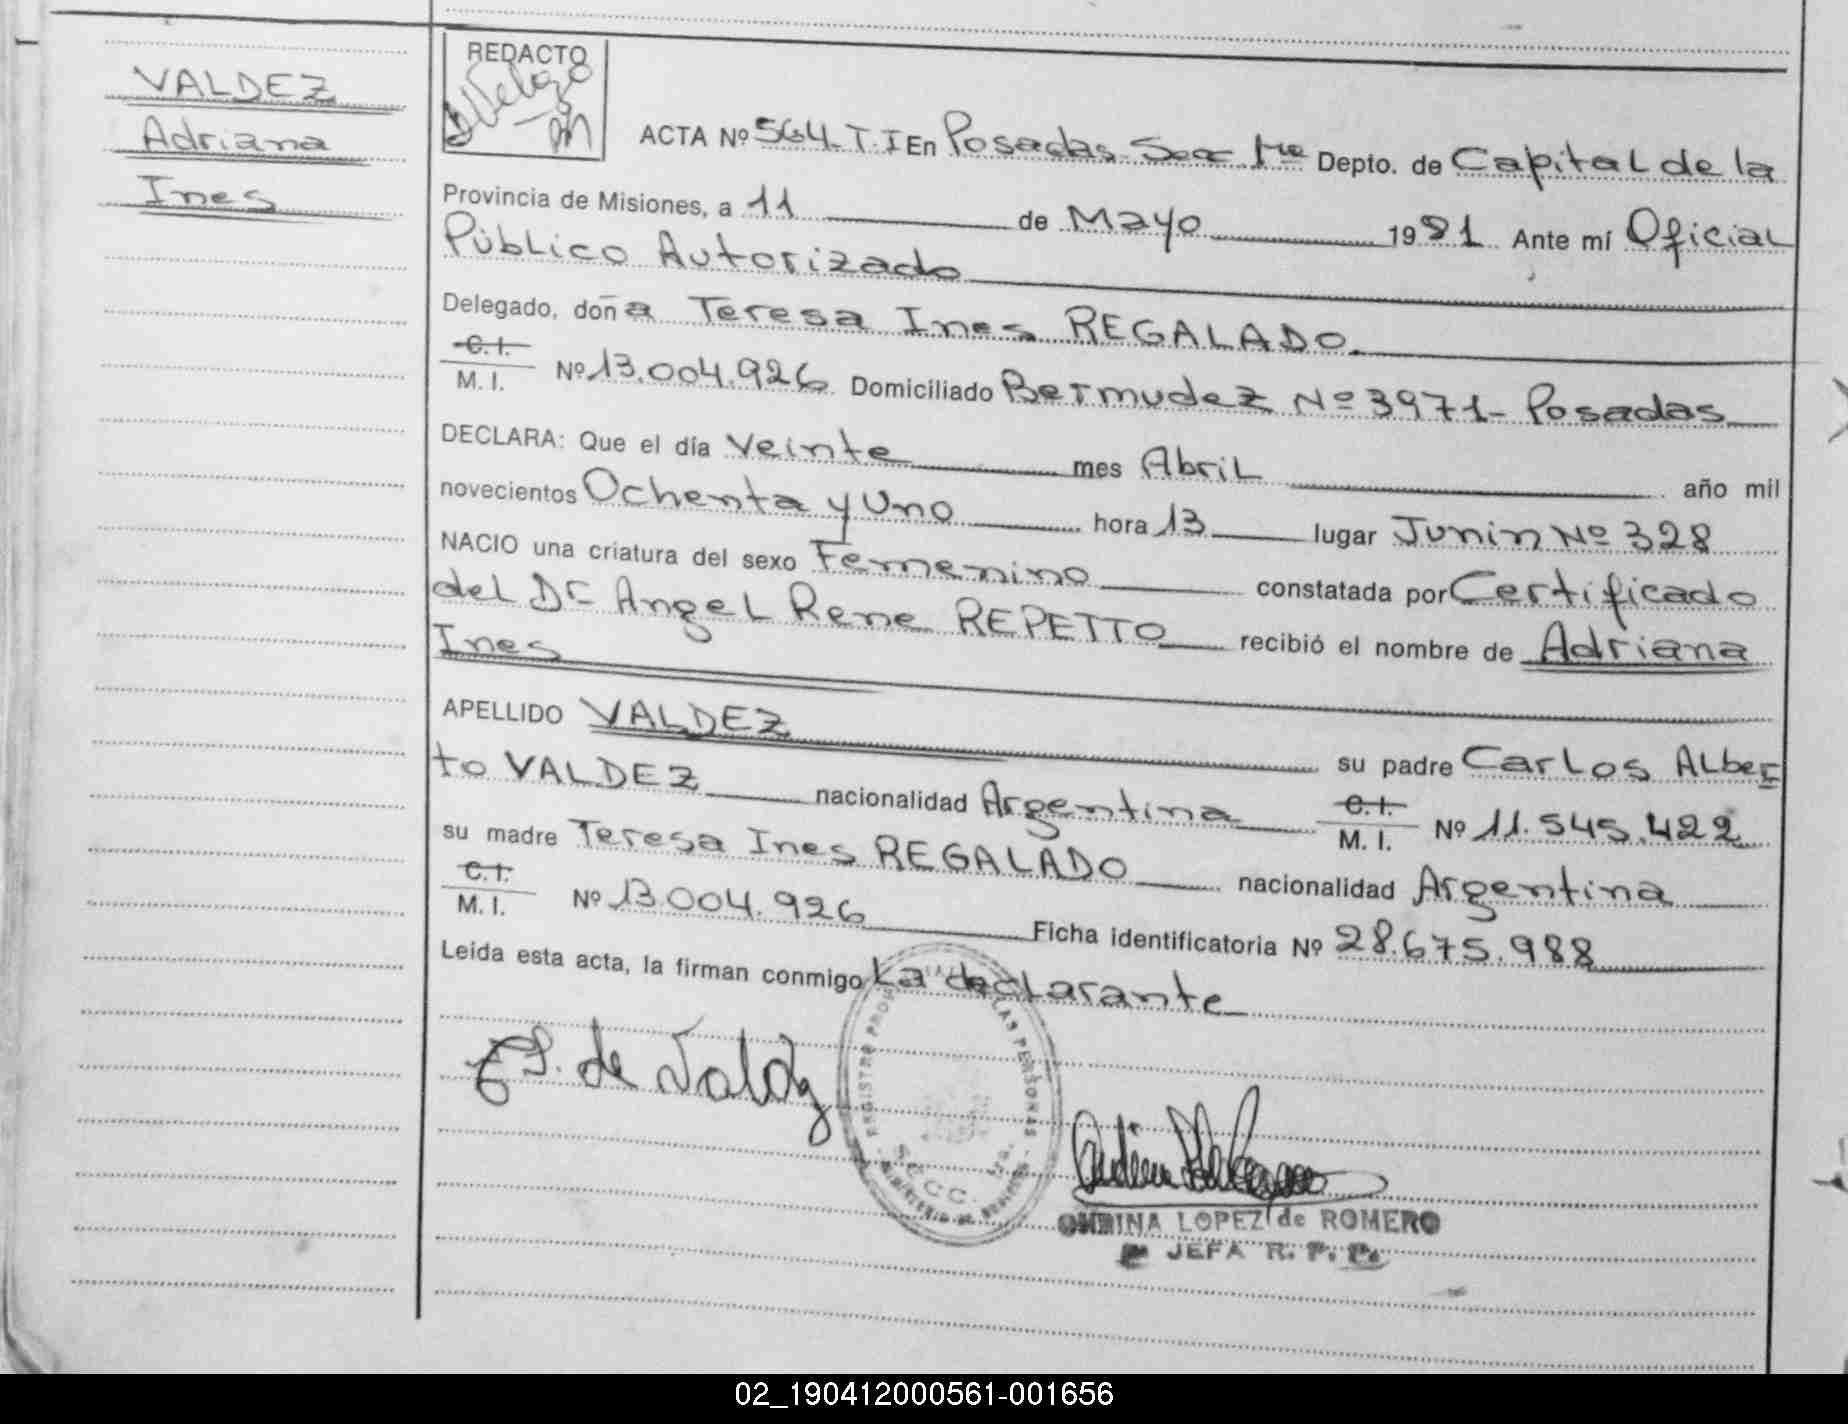 VALDEZ
Adriana
Ines
REDACTO
ACTA Nº 564. T. I En Posadas Secc 1ra Depto. de Capital de la
Provincia de Misiones, a 11 de Mayo 1981 Ante mí Oficial
Público Autorizado
Delegado, doña Teresa Ines REGALADO.
C.I.
M. I. Nº 13.004.926 Domiciliado Bermudez Nº 3971- Posadas
DECLARA: Que el día Veinte mes Abril año mil
novecientos Ochenta y Uno hora 13 lugar Junin Nº 328
NACIO una criatura del sexo Femenino constatada por Certificado
del Dr Angel Rene REPETTO recibió el nombre de Adriana
Ines
APELLIDO VALDEZ su padre Carlos Alber
to VALDEZ nacionalidad Argentina C.I. M. I. Nº 11.545.422
su madre Teresa Ines REGALADO nacionalidad Argentina
C.I.
M. I. Nº 13.004.926 Ficha identificatoria Nº 28.675.988
Leida esta acta, la firman conmigo La declarante
de Valdez
REGISTRO LAS PERSONAS
LOPEZ de ROMERO
JEFA R. P. P.
02_190412000561-001656